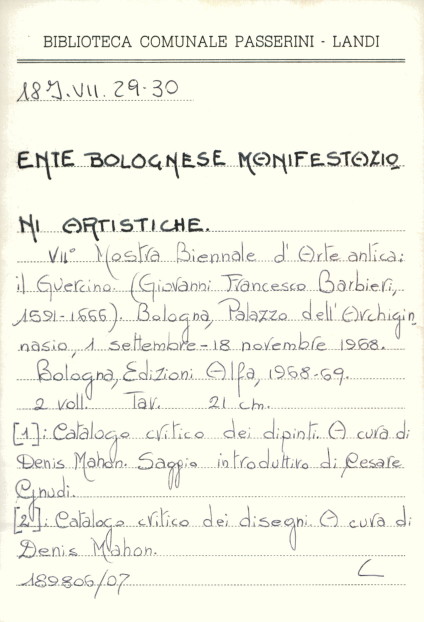 BIBLIOTECA COMUNALE PASSERINI - LANDI
18 J.VII. 29-30
ENTE BOLOGNESE MANIFESTAZIO
NI ARTISTICHE.
VII° Mostra Biennale d'Arte antica:
il Guercino. (Giovanni Francesco Barbieri,
1591-1666). Bologna, Palazzo dell'Archigin
nasio, 1 settembre-18 novembre 1968.
Bologna, Edizioni Alfa, 1968-69.
2 voll. Tav. 21 cm.
[1]: Catalogo critico dei dipinti. A cura di
Denis Mahon. Saggio introduttivo di Cesare
Gnudi.
[2]: Catalogo critico dei disegni. A cura di
Denis Mahon.
189806/07